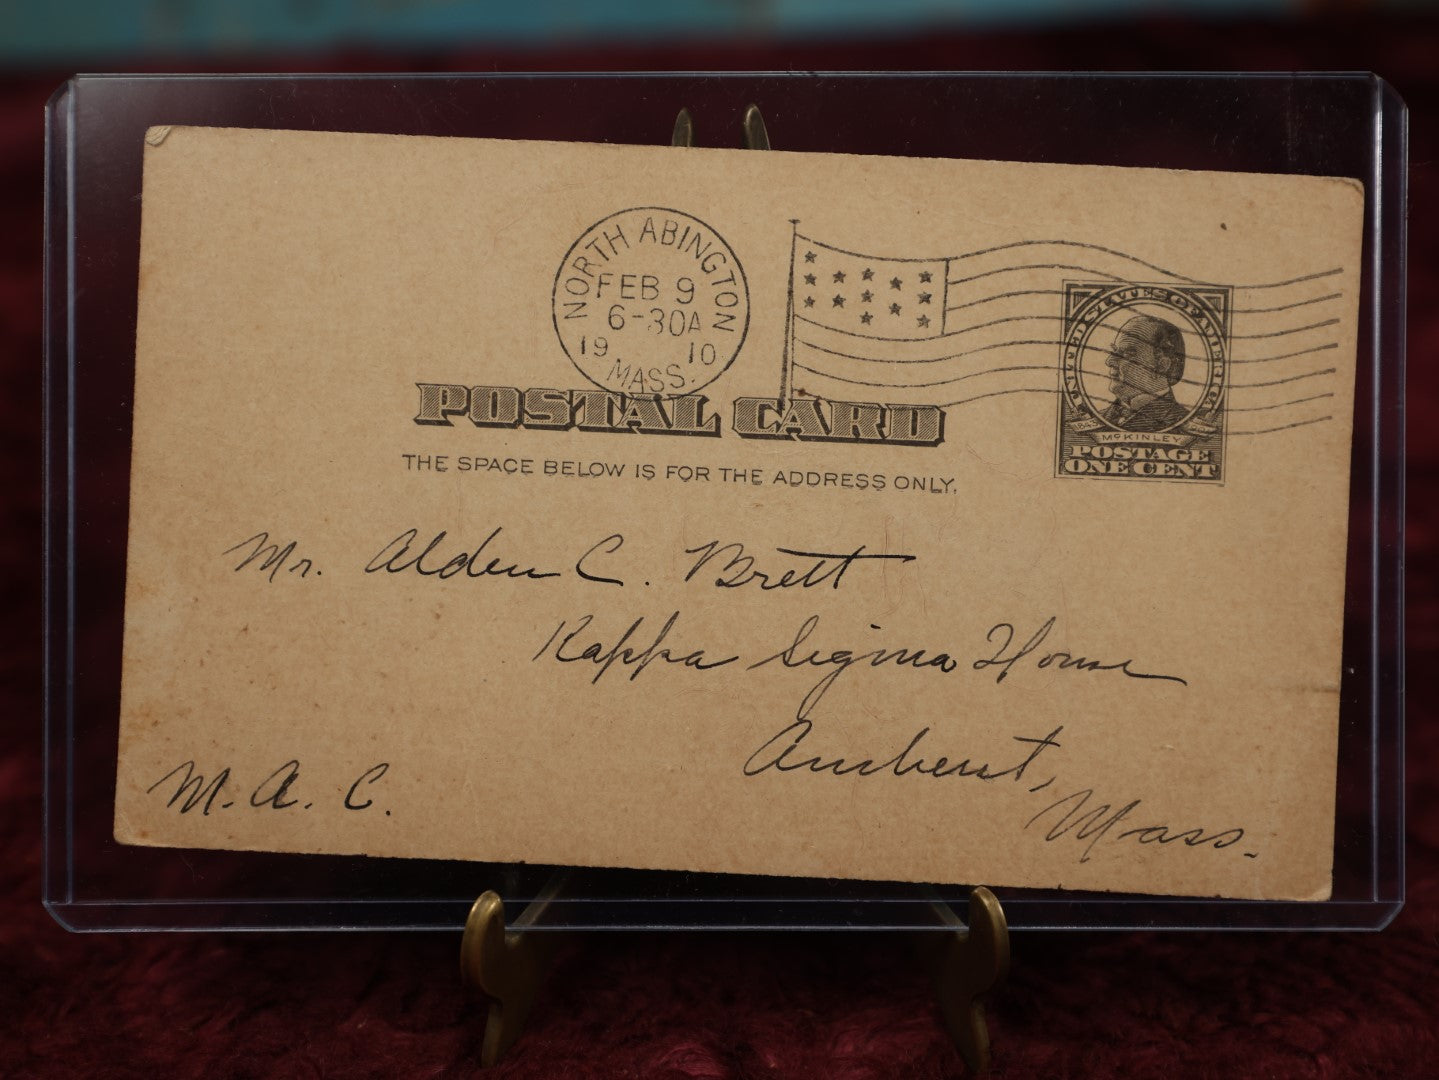 NORTH ABINGTON
FEB 9
6-30A
19 10
MASS.
UNITED STATES OF AMERICA
1843
McKINLEY
POSTAGE
ONE CENT
POSTAL CARD
THE SPACE BELOW IS FOR THE ADDRESS ONLY.
Mr. Alden C. Brett
Kappa Sigma House
Amherst,
M. A. C.
Mass.